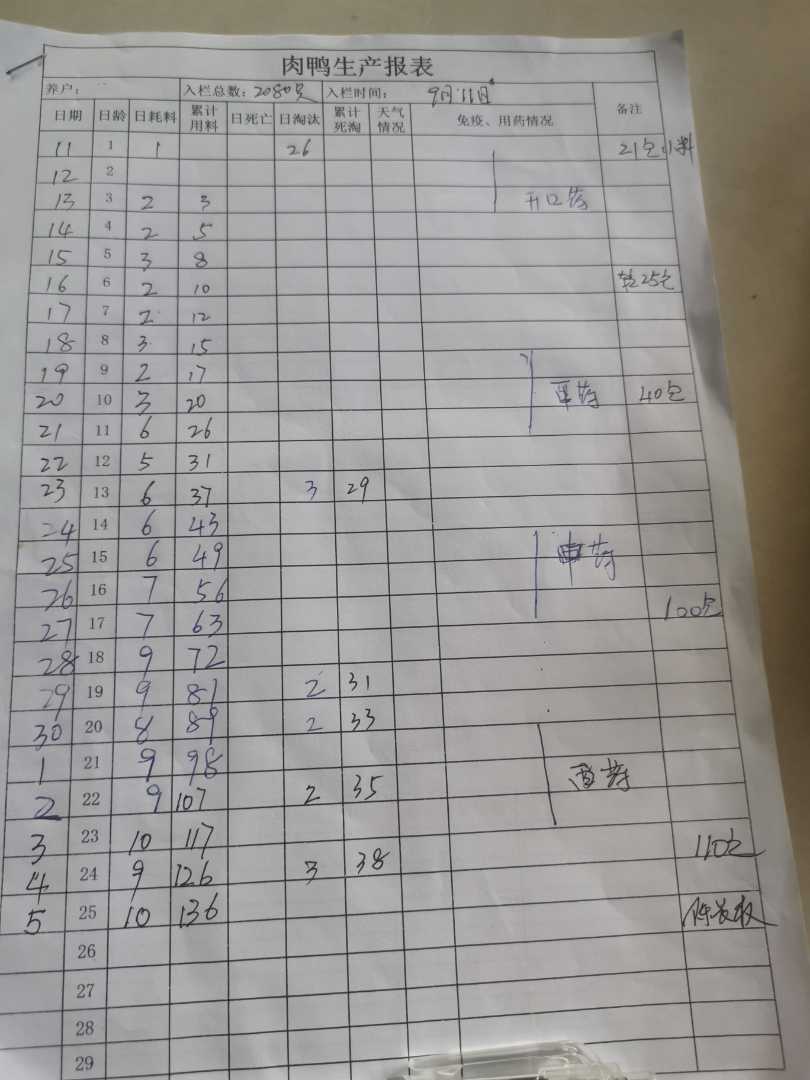 肉鸭生产报表
养户： 入栏总数：2080只 入栏时间： 9月11日
日期 日龄 日耗料 累计用料 日死亡 日淘汰 累计死淘 天气情况 免疫、用药情况 备注
11 1 1 26 21包小料
12 2
13 3 2 3 开口药
14 4 2 5
15 5 3 8
16 6 2 10 25包
17 7 2 12
18 8 3 15
19 9 2 17
20 10 3 20 药 40包
21 11 6 26
22 12 5 31
23 13 6 37 3 29
24 14 6 43
25 15 6 49 药
26 16 7 56
27 17 7 63 100包
28 18 9 72
29 19 9 81 2 31
30 20 8 89 2 33
1 21 9 98
2 22 9 107 2 35 药
3 23 10 117 110包
4 24 9 126 3 38
5 25 10 136
26
27
28
29